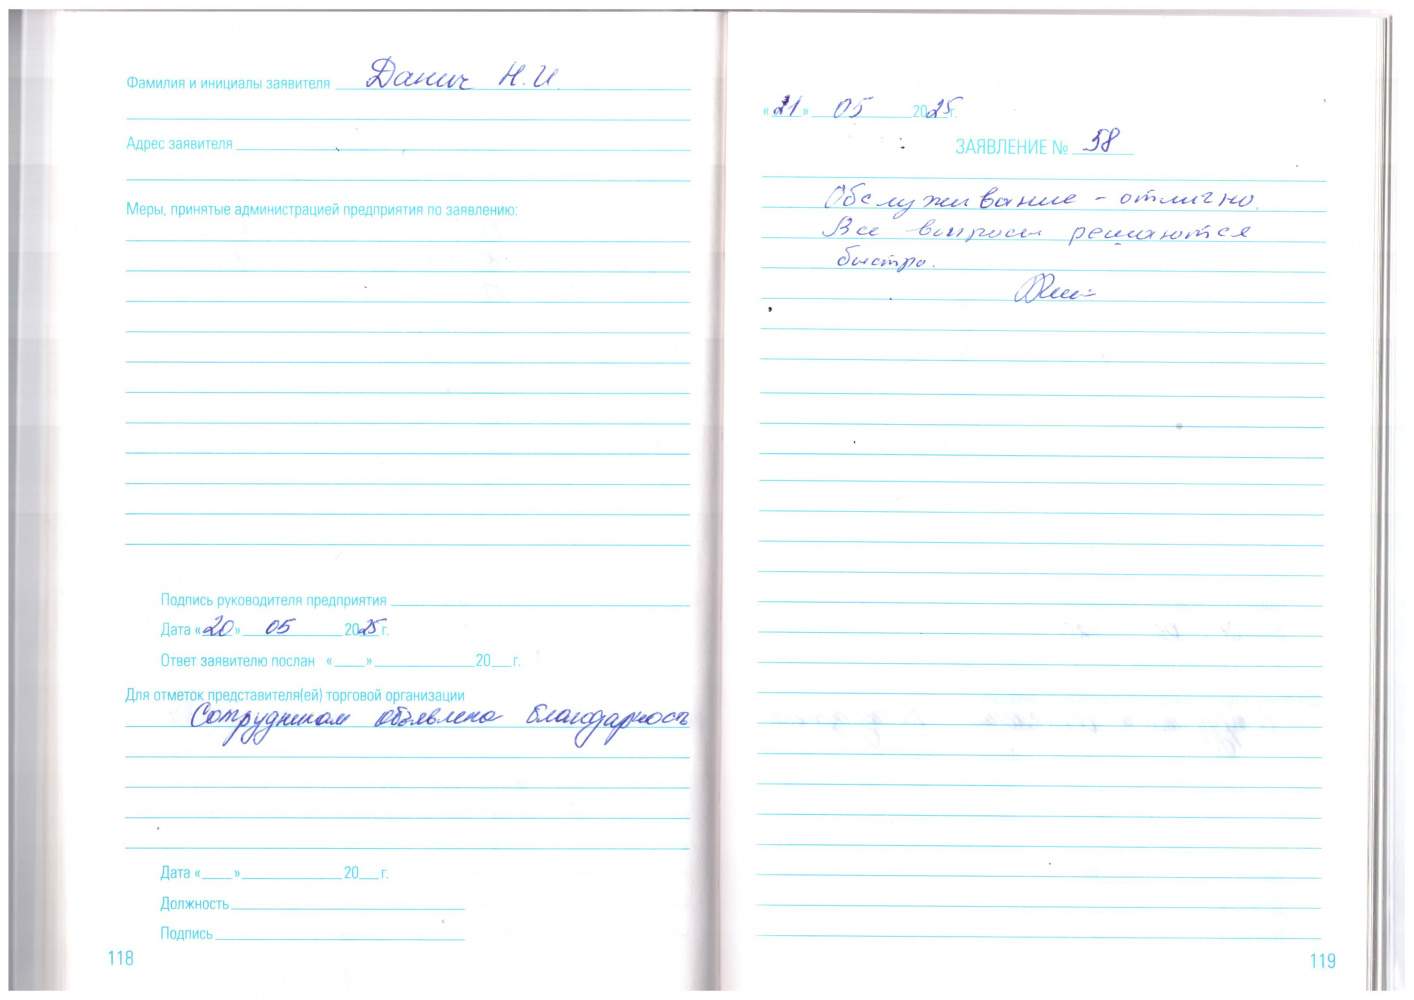 Фамилия и инициалы заявителя Данич Н.И.
Адрес заявителя
Меры, принятые администрацией предприятия по заявлению:
Подпись руководителя предприятия
Дата «20» 05 2025 г.
Ответ заявителю послан «____»____________20___г.
Для отметок представителя(ей) торговой организации
Сотрудникам объявлена благодарность
Дата «____»____________20___г.
Должность
Подпись
118
«21» 05 2025г.
ЗАЯВЛЕНИЕ № 58
Обслуживание - отлично.
Все вопросы решаются
быстро.
119